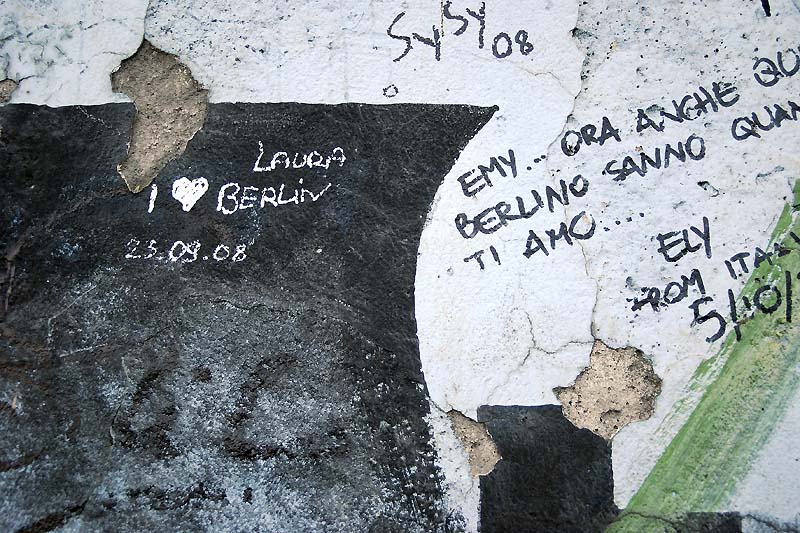 SYSY 08
LAURA
I ♥ BERLIN
23.09.08
EMY... ORA ANCHE QU
BERLINO SANNO QUAN
TI AMO....
ELY
FROM ITALY
5/10/